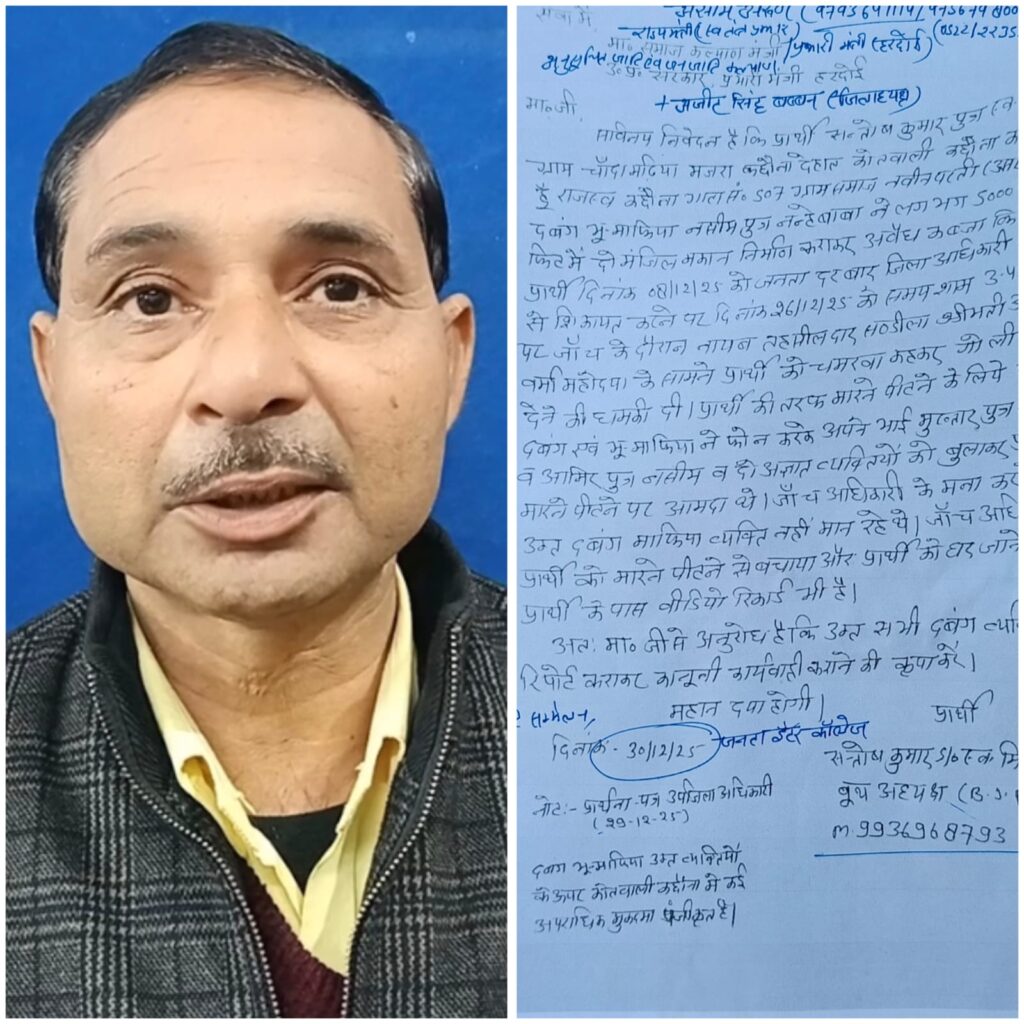 सेवा में
असीम अरुण
राज्यमंत्री (स्वतंत्र प्रभार)
मा० समाज कल्याण मंत्री / प्रभारी मंत्री (हरदोई)
अनुसूचित जाति एवं जनजाति कल्याण
उ० प्र० सरकार प्रभारी मंत्री हरदोई
+ अजीत सिंह बब्बन (जिलाध्यक्ष)
मा० जी,
सविनय निवेदन है कि प्रार्थी सन्तोष कुमार पुत्र स्व.
ग्राम मजरा कछौना देहात कोतवाली कछौना का
है राजस्व कछौना गाटा सं० 507 ग्राम समाज नवीन परती
दबंग भू-माफिया नसीम पुत्र नन्हे बाबा ने लगभग 5000
फिट में दो मंजिल मकान निर्माण कराकर अवैध कब्जा
प्रार्थी दिनांक 08/12/25 को जनता दरबार जिला अधिकारी
से शिकायत करने पर दिनांक 26/12/25 को समय शाम 3-4
पर जाँच के दौरान नायब तहसीलदार सण्डीला श्रीमती
वर्मा महोदया के सामने प्रार्थी को चमरवा कहकर गोली
देने की धमकी दी। प्रार्थी की तरफ मारने पीटने के लिये
दबंग एवं भू-माफिया ने फोन करके अपने भाई मुख्तार पुत्र
व आमिर पुत्र नसीम व दो अज्ञात व्यक्तियों को बुलाकर
मारने पीटने पर आमदा थे। जाँच अधिकारी के मना
उक्त दबंग माफिया व्यक्ति नहीं मान रहे थे। जाँच
प्रार्थी को मारने पीटने से बचाया और प्रार्थी को घर जाने
प्रार्थी के पास वीडियो रिकार्ड भी है।
अतः मा० जी से अनुरोध है कि उक्त सभी दबंग
रिपोर्ट कराकर कानूनी कार्यवाही कराने की कृपा करें।
महान दया होगी।
प्रार्थी
दिनांक- 30/12/25 जनता इंटर कॉलेज
सन्तोष कुमार S/o स्व.
नोट:- प्रार्थना-पत्र उपजिला अधिकारी
(29-12-25)
बूथ अध्यक्ष (B. J.
m. 9936968793
दबंग भू-माफिया उक्त व्यक्तियों
के ऊपर कोतवाली कछौना में कई
अपराधिक मुकदमा पंजीकृत है।